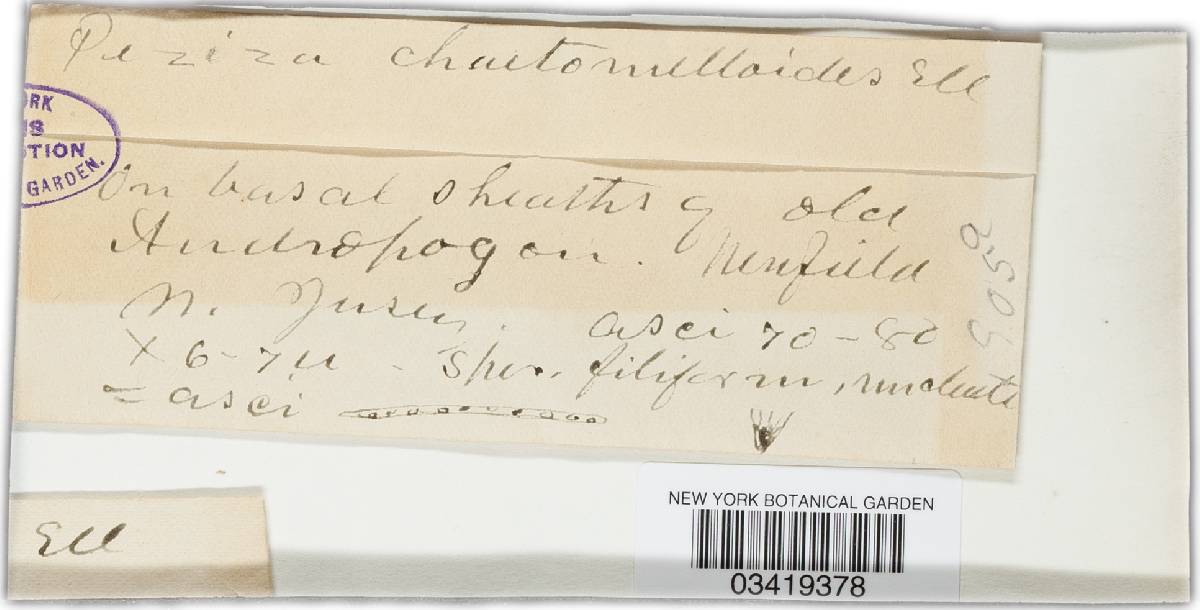 Peziza chaetomelloides Ell
ORK
IS
TION
GARDEN.
On basal sheaths of old
Andropogon. Newfield
N. Jersey. asci 70-80
X 6-7 u - Spor. filiform, nucleate
= asci
Ell
NEW YORK BOTANICAL GARDEN
03419378